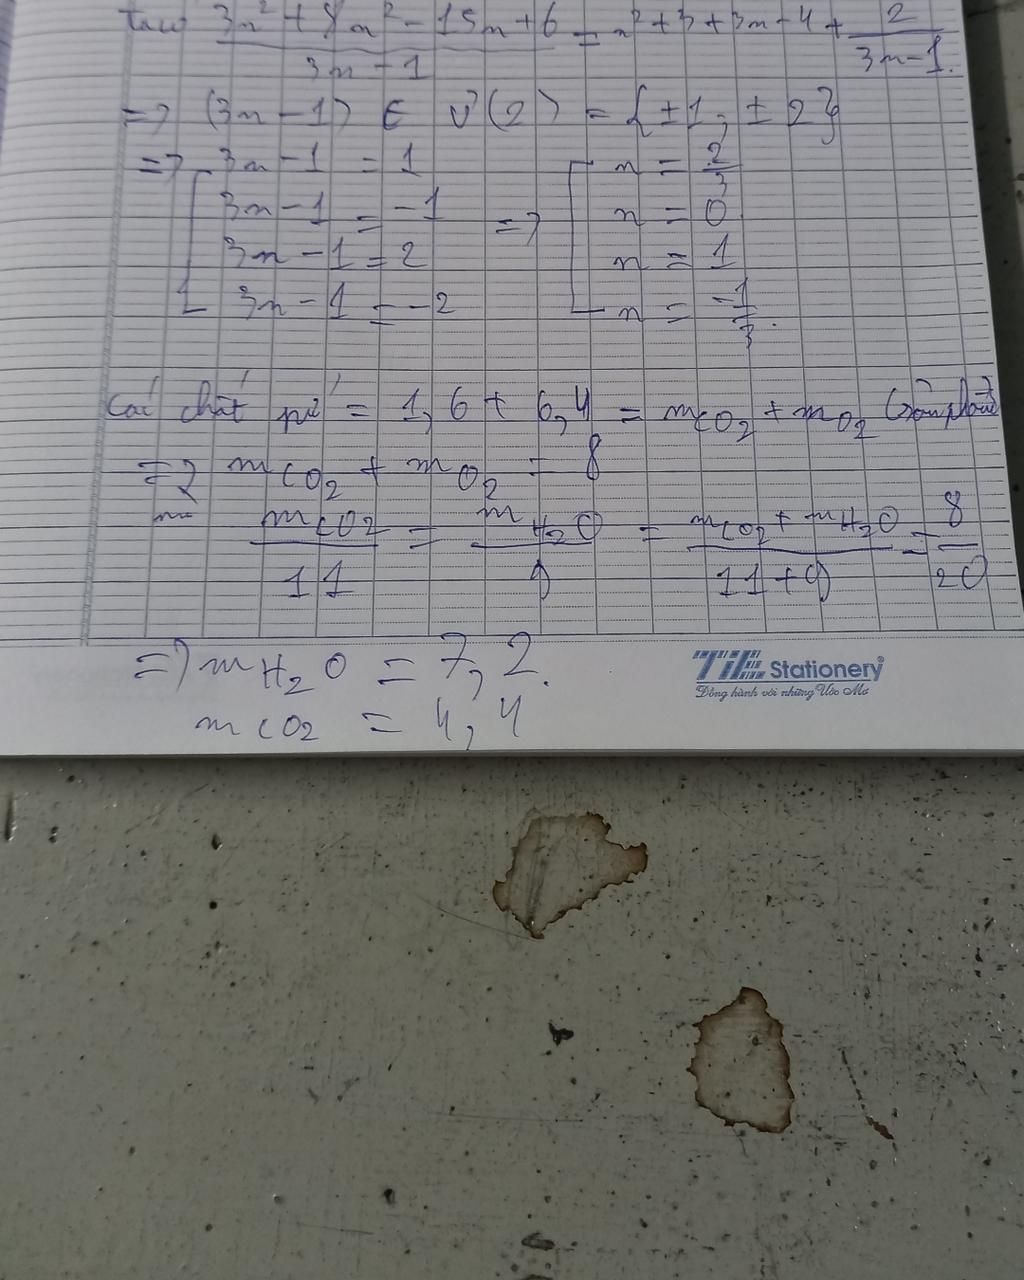 3n² + 8n² - 15n + 6 / 3n - 1 = n² + 3 + 3n - 4 + 2 / 3n - 1.
=> (3n - 1) ∈ Ư(2) = {±1, ±2}
=> [ 3n - 1 = 1
3n - 1 = -1
3n - 1 = 2
3n - 1 = -2
=> [ n = 2/3
n = 0
n = 1
n = -1/3.
Các chất pứ = 1,6 + 6,4 = mCO2 + mO2 (sản phẩm
=> mCO2 + mO2 = 8
mà mCO2 / 11 = mH2O / 9 = mCO2 + mH2O / 11 + 9 = 8 / 20
=> mH2O = 7,2.
mCO2 = 4,4
TiE Stationery
Đồng hành với những Ước Mơ